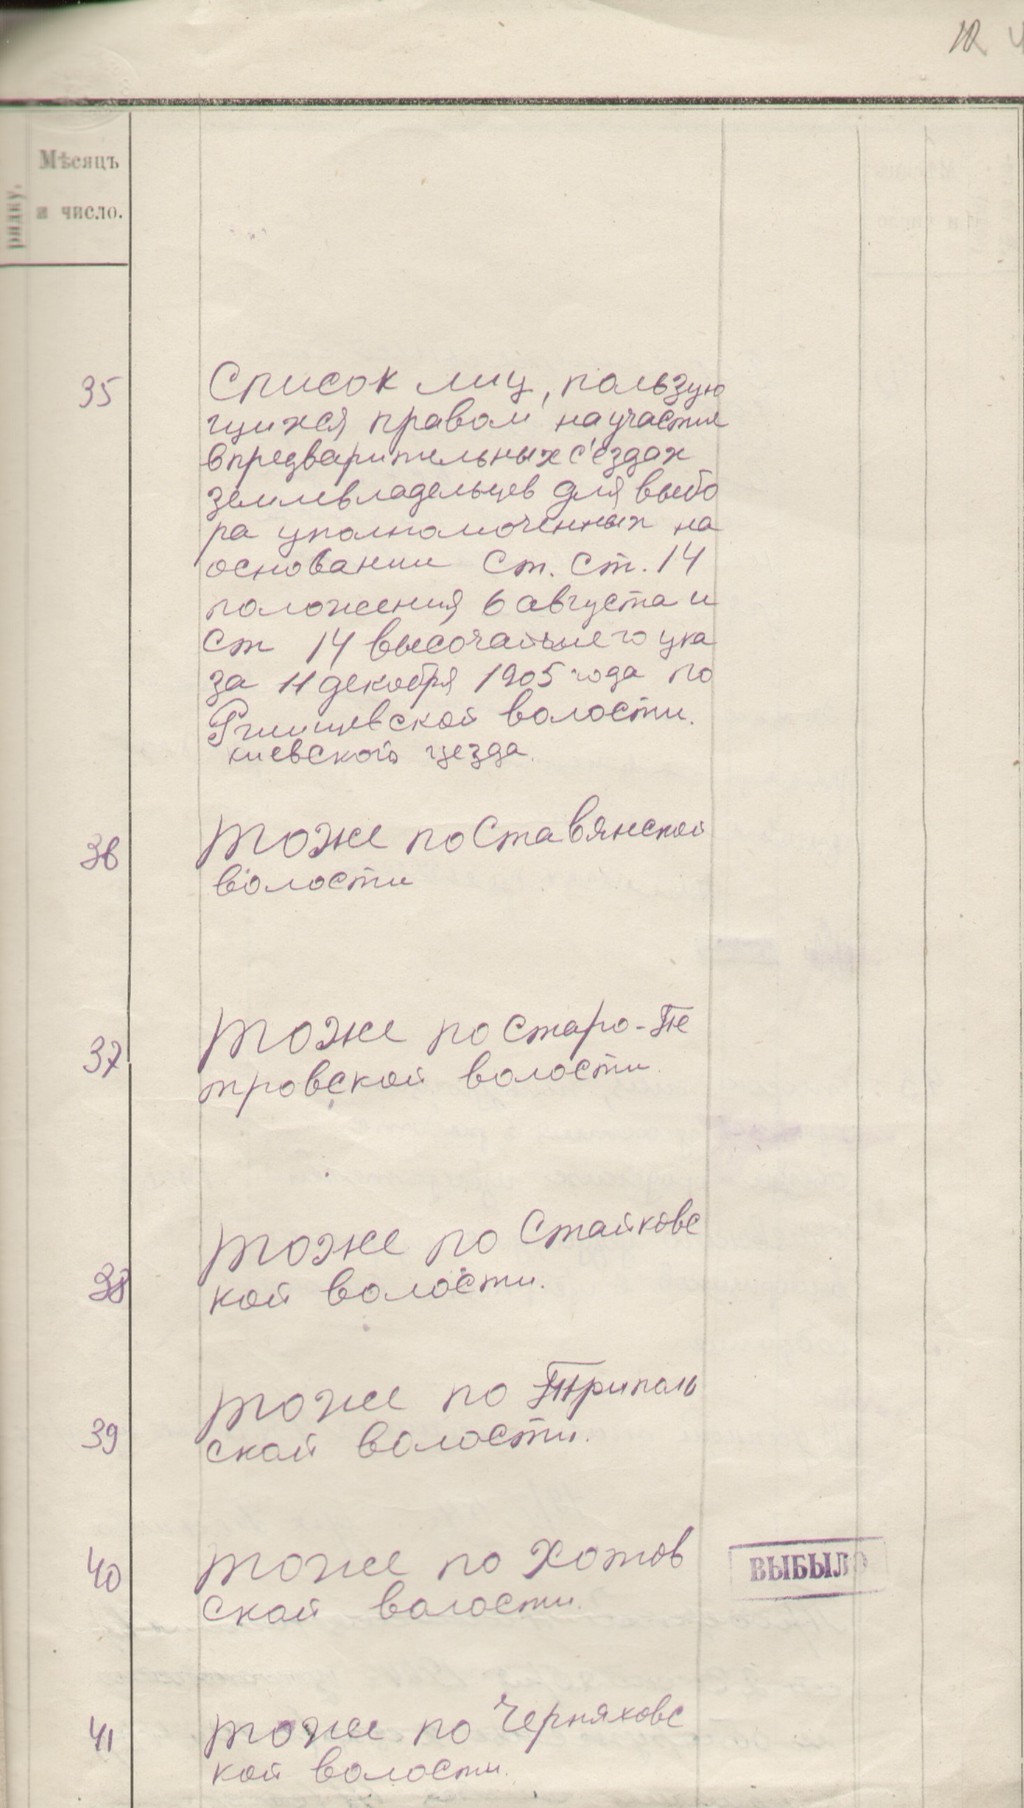 12
Мѣсяцъ
и число.
рядку,
35
Список лиц, пользую
щихся правом на участия
в предварительных с'ездах
землевладельцев для выбо
ра уполномоченных на
основании Ст. Ст. 14
положения 6 августа и
Ст 14 высочайшего ука
за 11 декабря 1905 года по
Ржищевской волости.
киевского уезда.
36
тоже по Ставянской
волости
37
тоже по Старо-Пе
тровской волости.
38
тоже по Стайковс
кой волости.
39
тоже по Триполь
ской волости.
40
тоже по Хотов
ской волости.
ВЫБЫЛО
41
тоже по Черняховс
кой волости.